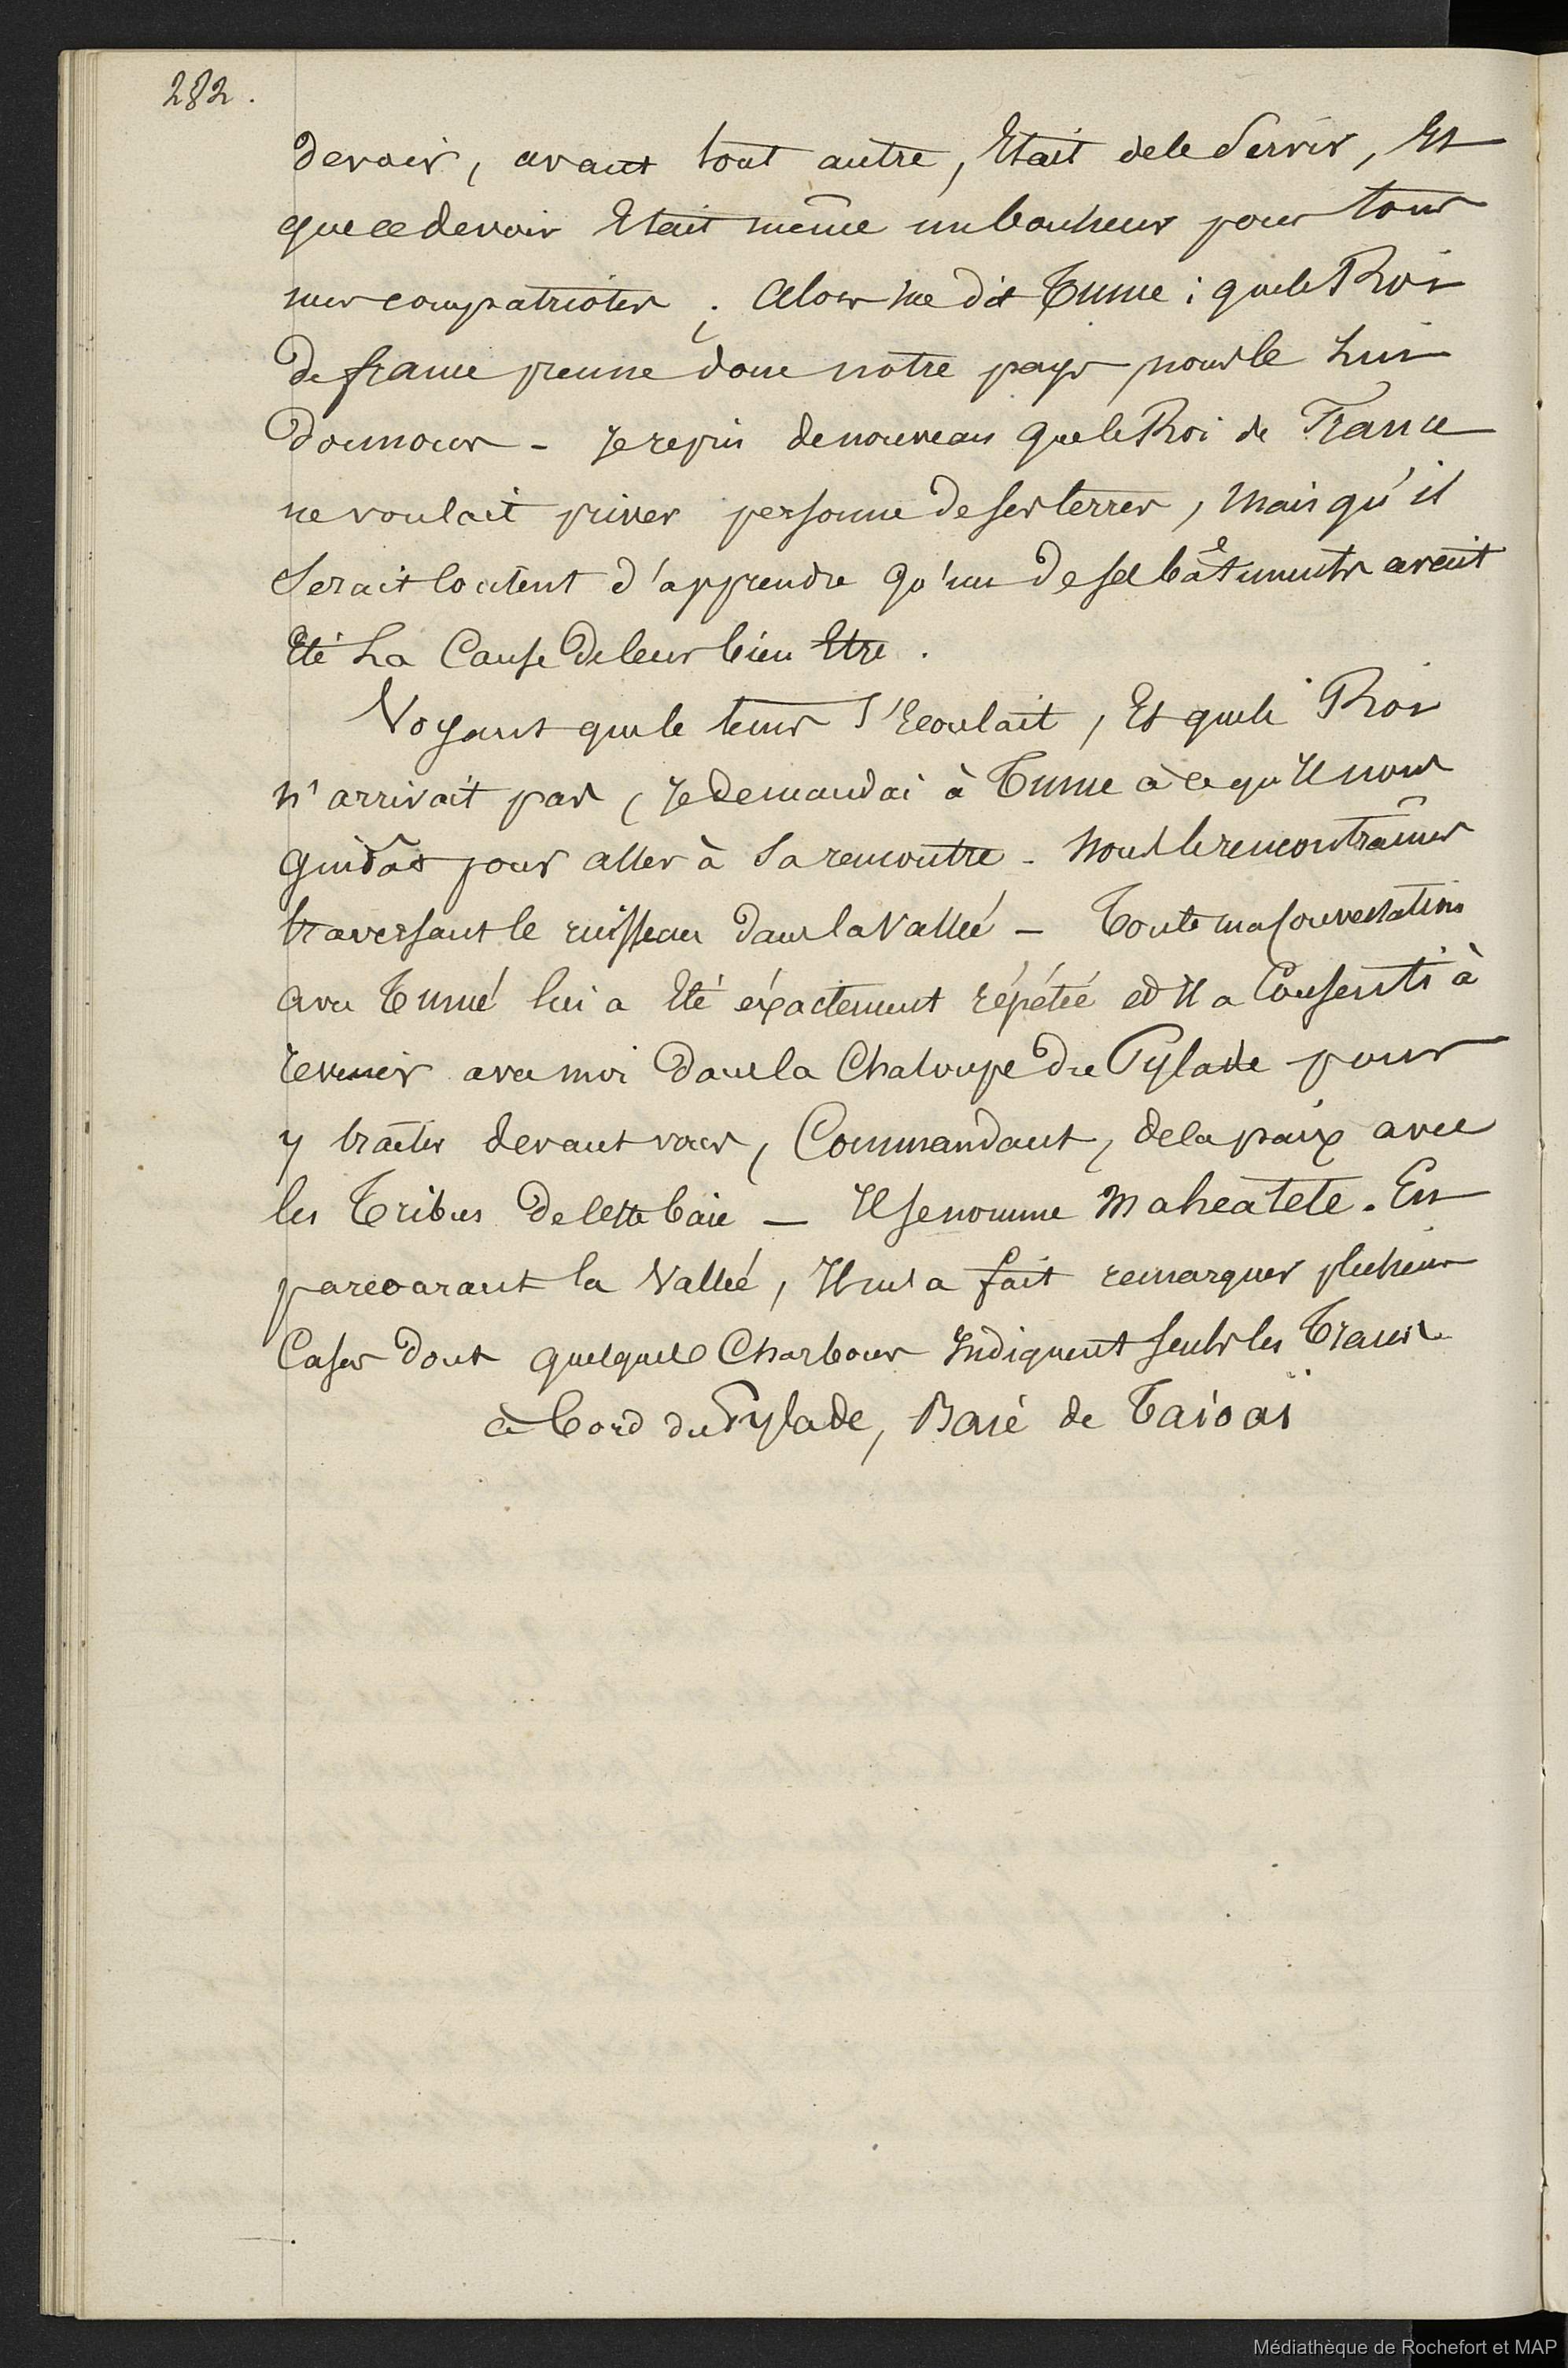 282.
devoir, avant tout autre, Etait de le Servir, Et
que ce devoir Etait même un bonheur pour tous
mes compatriotes ; alors me dit Tumé ; que le Roi
de france prenne donc notre pays nous le Lui
donnons - Je repris de nouveau que le Roi de France
ne voulait priver personne de ses terres, Mais qu'il
Serait Content d'apprendre qu'un de ses bâtiments avait
Eté La Cause de leur bien Etre.
Voyant que le tems S'Ecoulait, Et que le Roi
n'arrivait pas, Je demandai à Tume à ce qu'Il nous
guidât pour aller à Sa rencontre - Nous le rencontrâmes
traversant le ruisseau dans la Vallée - Toute ma Conversation
avec Tumé lui a Eté éxactement répétée et Il a Consenti à
revenir avec moi dans la Chaloupe du Pylade pour
y traiter devant vous, Commandant, de la paix avec
les Tribus de Cette baie - Il se nomme Maheatete. En
parcourant la Vallée, Il m'a fait remarquer plusieurs
Cases dont quelques Charbons Indiquent seuls les Traces
à bord du Pylade, Baie de Taioaï
Médiathèque de Rochefort et MAP